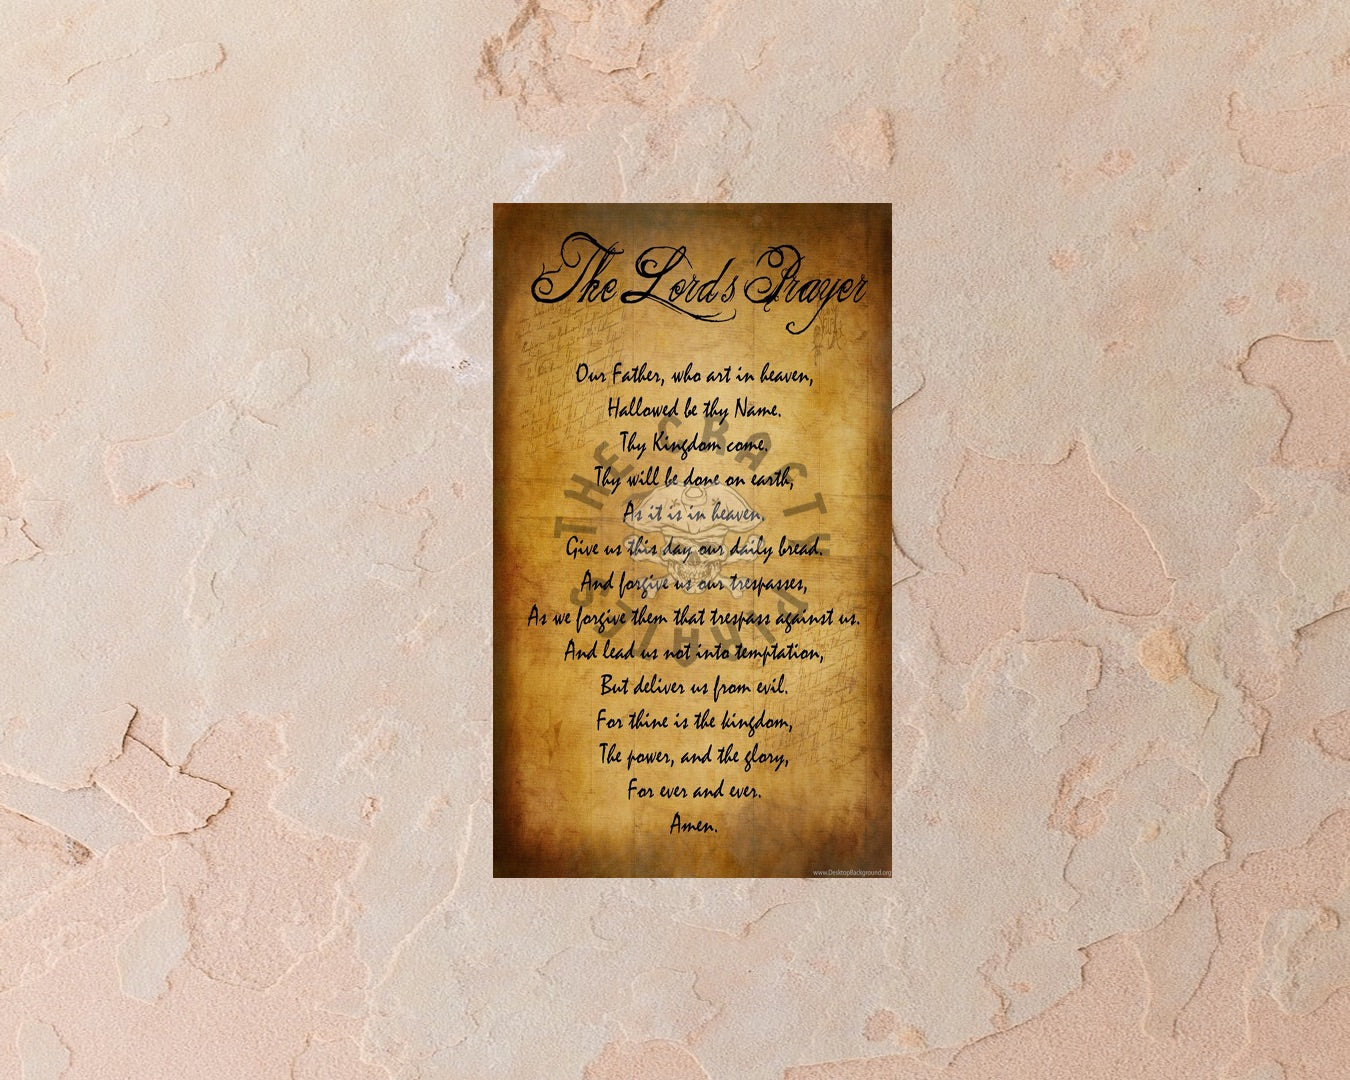 The Lords Prayer
Our Father, who art in heaven,
Hallowed be thy Name.
Thy Kingdom come.
Thy will be done on earth,
As it is in heaven.
Give us this day our daily bread.
And forgive us our trespasses,
As we forgive them that trespass against us.
And lead us not into temptation,
But deliver us from evil.
For thine is the kingdom,
The power, and the glory,
For ever and ever.
Amen.
THE CRAFTY PIRATES
www.DesktopBackground.org